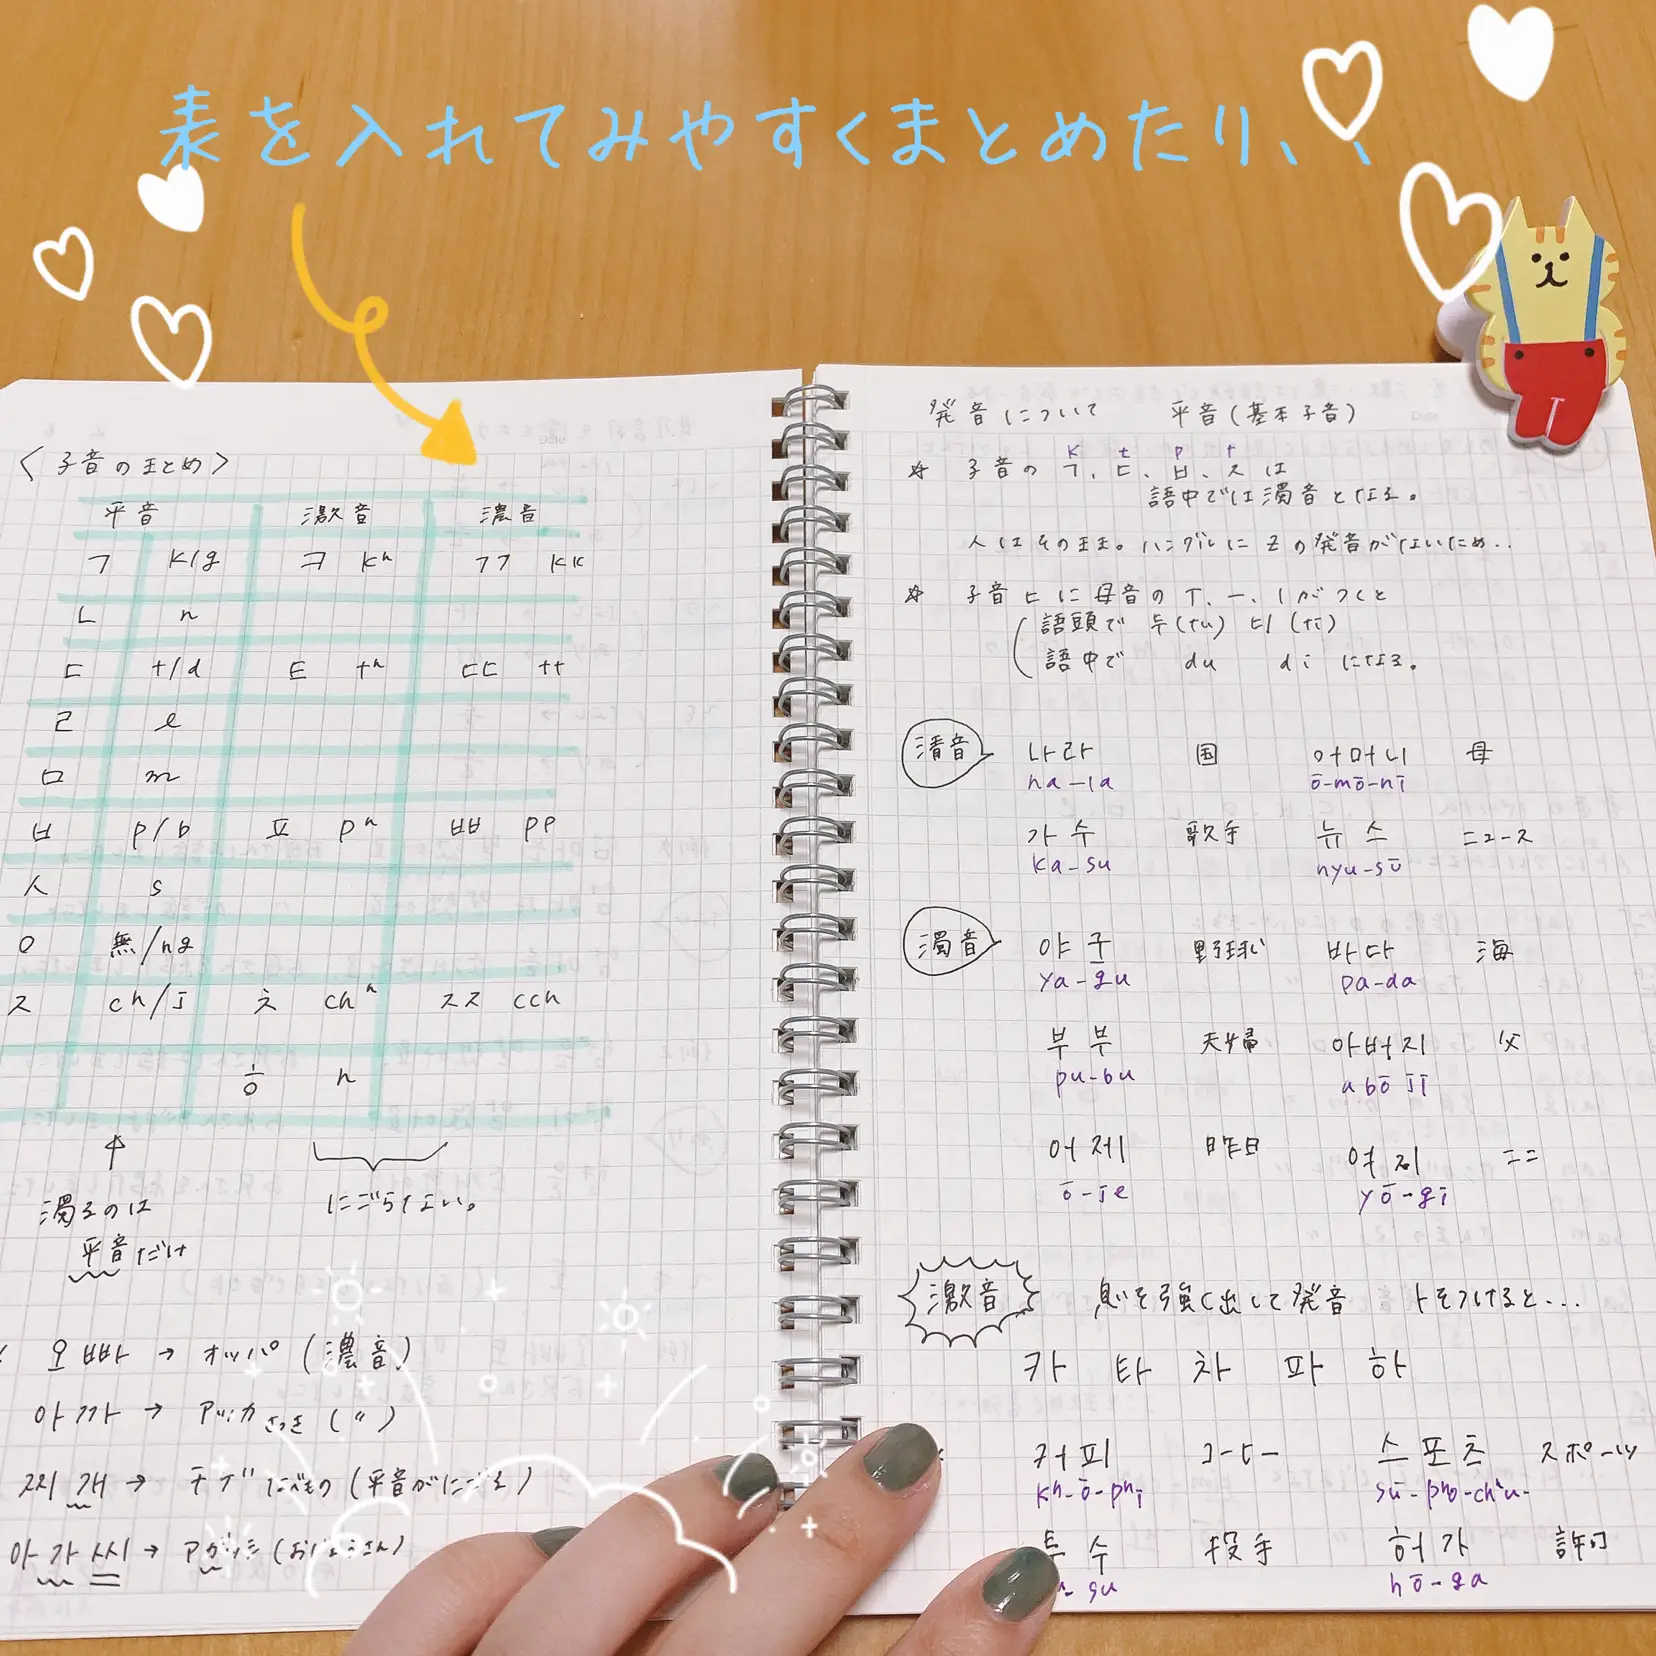 表を入れてみやすくまとめたり、、
〈子音のまとめ〉
平音 激音 濃音
ㄱ k/g ㅋ kʰ ㄲ kk
ㄴ n
ㄷ t/d ㅌ tʰ ㄸ tt
ㄹ l
ㅁ m
ㅂ p/b ㅍ pʰ ㅃ pp
ㅅ s
ㅇ 無/ng
ㅈ ch/j ㅊ chʰ ㅉ cch
ㅎ h
↑
濁るのは にごらない。
平音だけ
오빠 → オッパ (濃音)
아까 → アッカ さっき (〃)
찌개 → チゲ (平音がにごる)
아가씨 → アガッシ (おじょうさん)
発音について 平音(基本子音)
k t p
☆ 子音の ㄱ、ㄷ、ㅂ、ㅈ は
語中では濁音となる。
ㅅはそのまま。ハングルにzの発音がないため..
☆ 子音ㄷに母音のㅜ、ㅡ、ㅣがつくと
語頭で 두(tu) 디(ti)
語中で du di になる。
清音 나라 国 어머니 母
na-la ō-mō-nī
가수 歌手 뉴스 ニュース
ka-su nyu-sū
濁音 야구 野球 바다 海
ya-gu pa-da
부부 夫婦 아버지 父
pu-bu abō jī
어제 昨日 여기 ここ
ō-je yō-gi
激音 息を強く出して発音 トをつけると...
카 타 차 파 하
커피 コーヒー 스포츠 スポーツ
kʰ-ō-pʰi sū-pʰo-chʰu-
투수 投手 허가 許可
su hō-ga